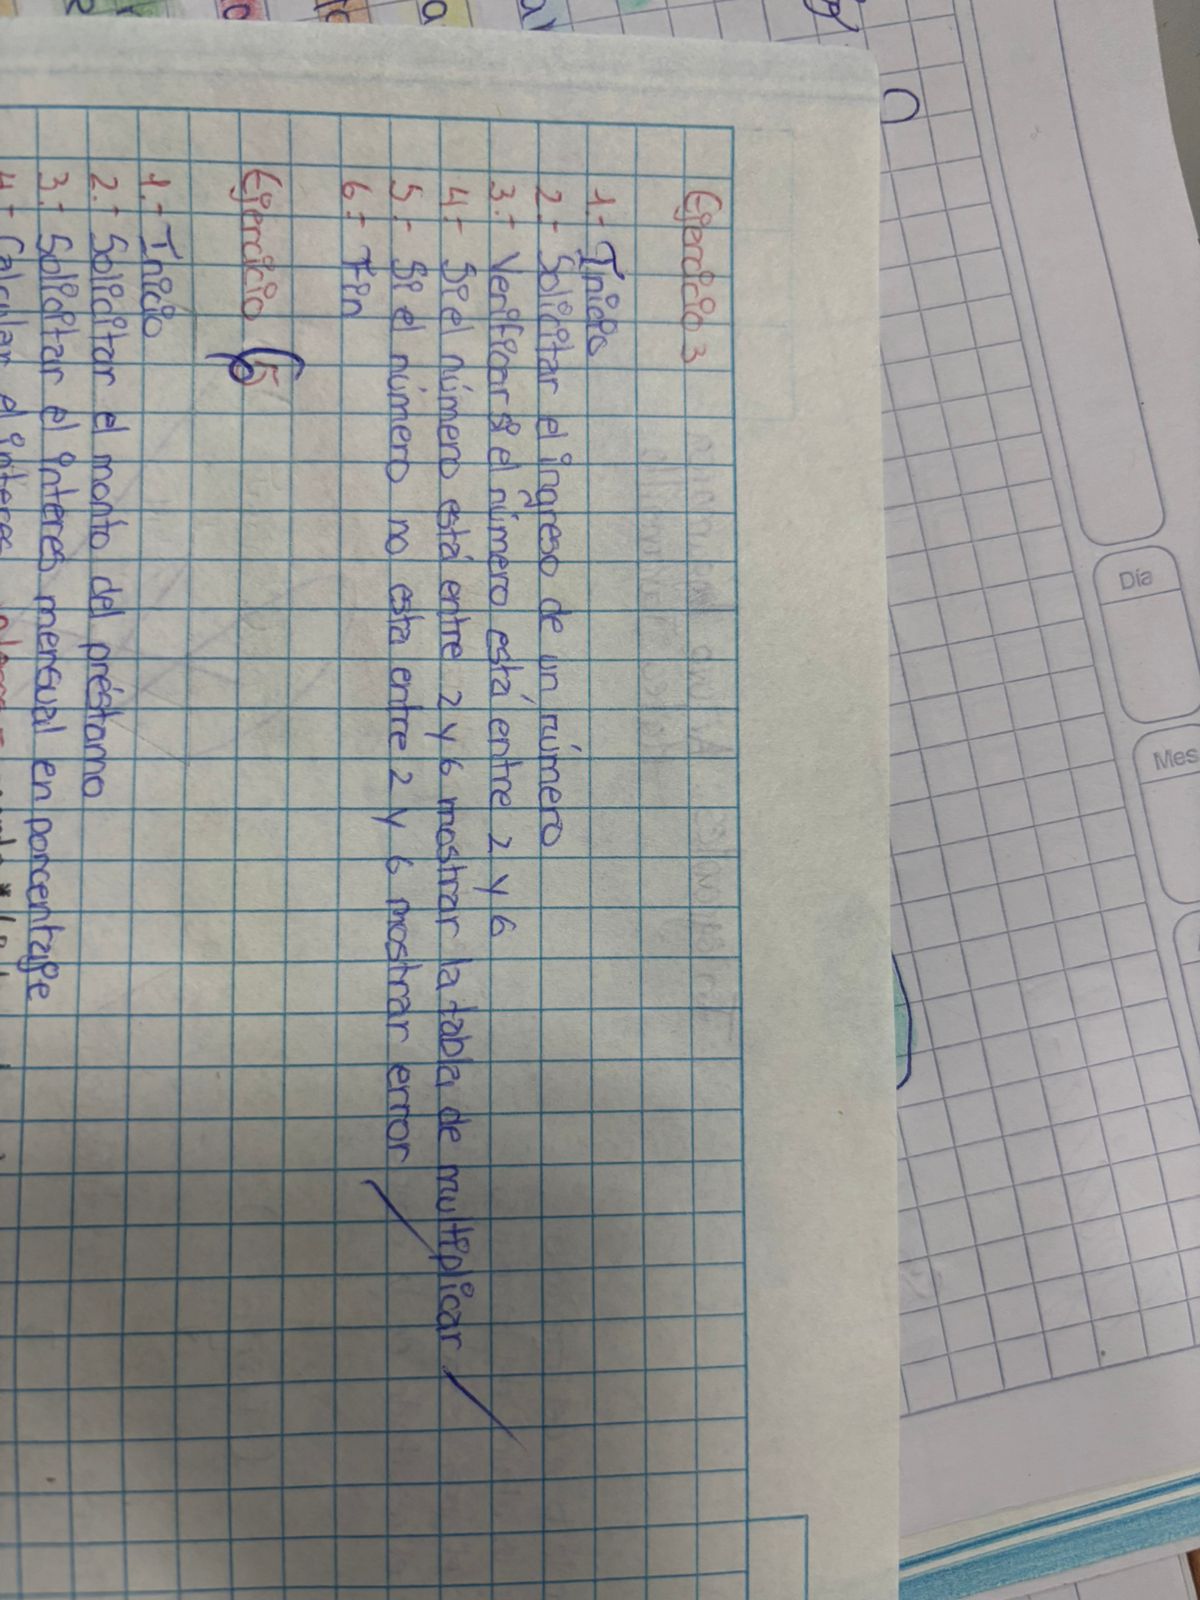 Ejercicio 3
1.- Inicio
2.- Solicitar el ingreso de un número
3.- Verificar si el número está entre 2 y 6
4.- Si el número está entre 2 y 6 mostrar la tabla de multiplicar
5.- Si el número no esta entre 2 y 6 mostrar error
6.- Fin
Ejercicio 6
1.- Inicio
2.- Solicitar el monto del préstamo
3.- Solicitar el interes mensual en porcentaje
4.- Calcular el interes
Día
Mes